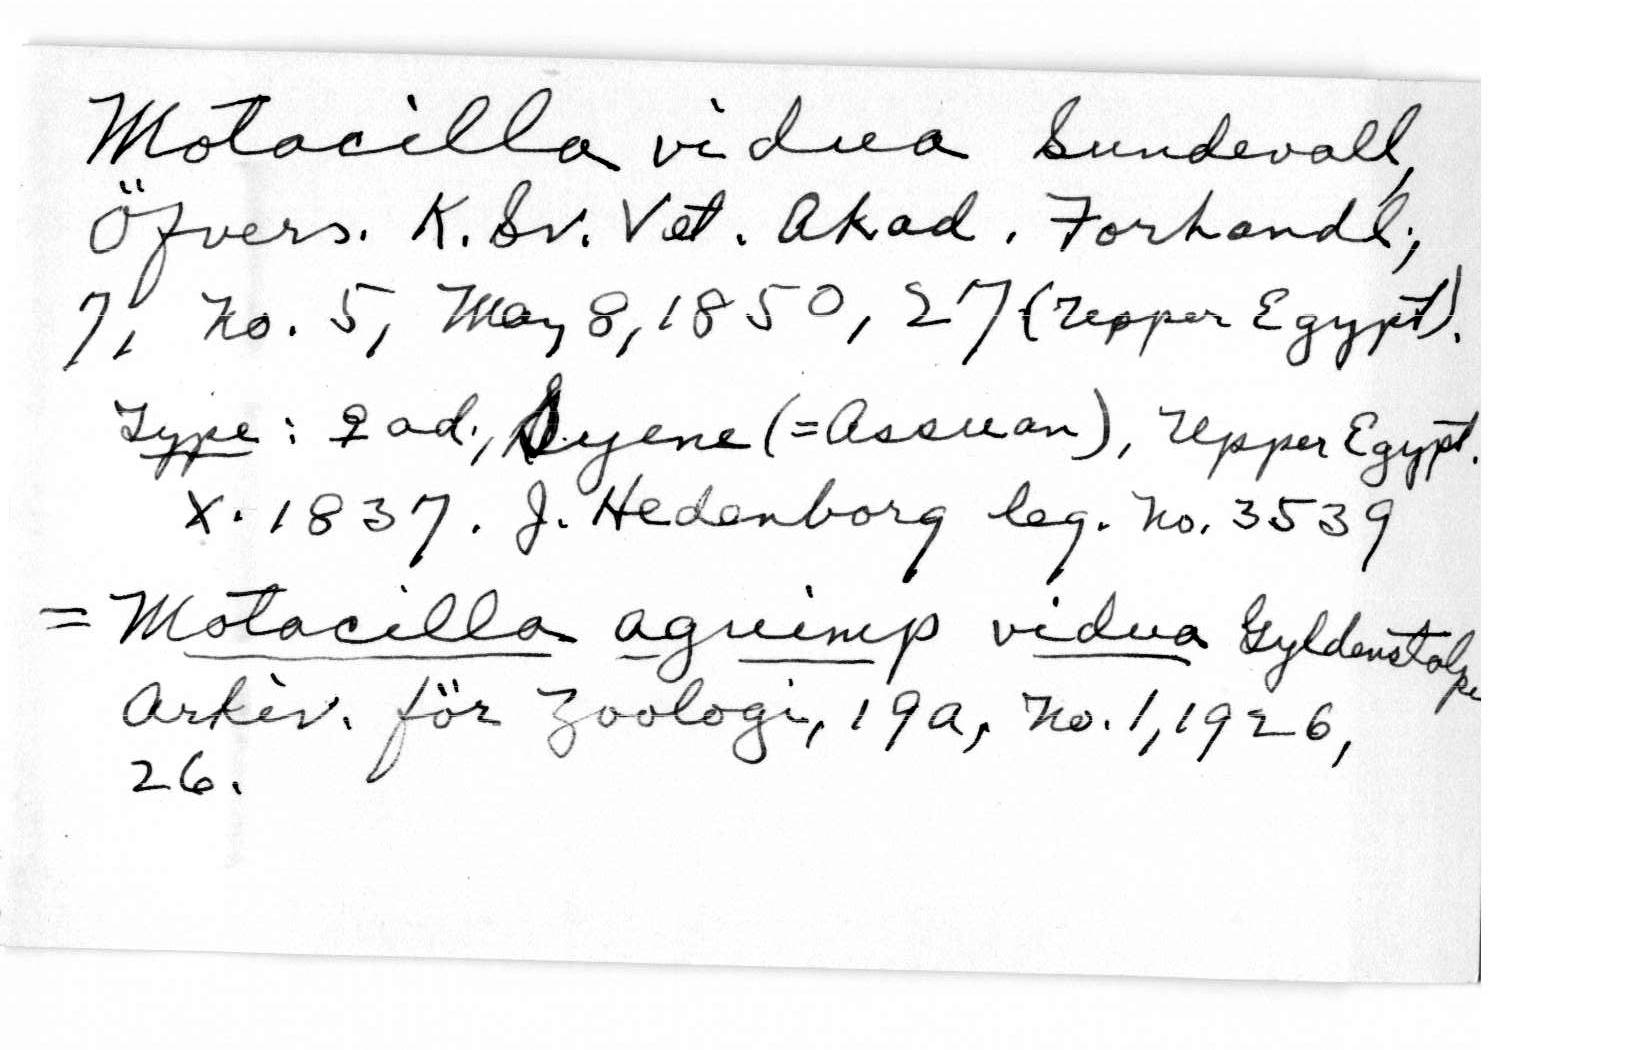 Motacilla vidua Sundevall,
Öfvers. K. Sv. Vet. Akad. Forhandl.,
7, No. 5, May 8, 1850, 27 (Upper Egypt).
Type: ♀ ad., Syene (=Assuan), Upper Egypt.
X. 1837. J. Hedenborg leg. No. 3539
= Motacilla aguimp vidua Gyldenstolpe
Arkiv. för Zoologi, 19a, No. 1, 1926,
26.